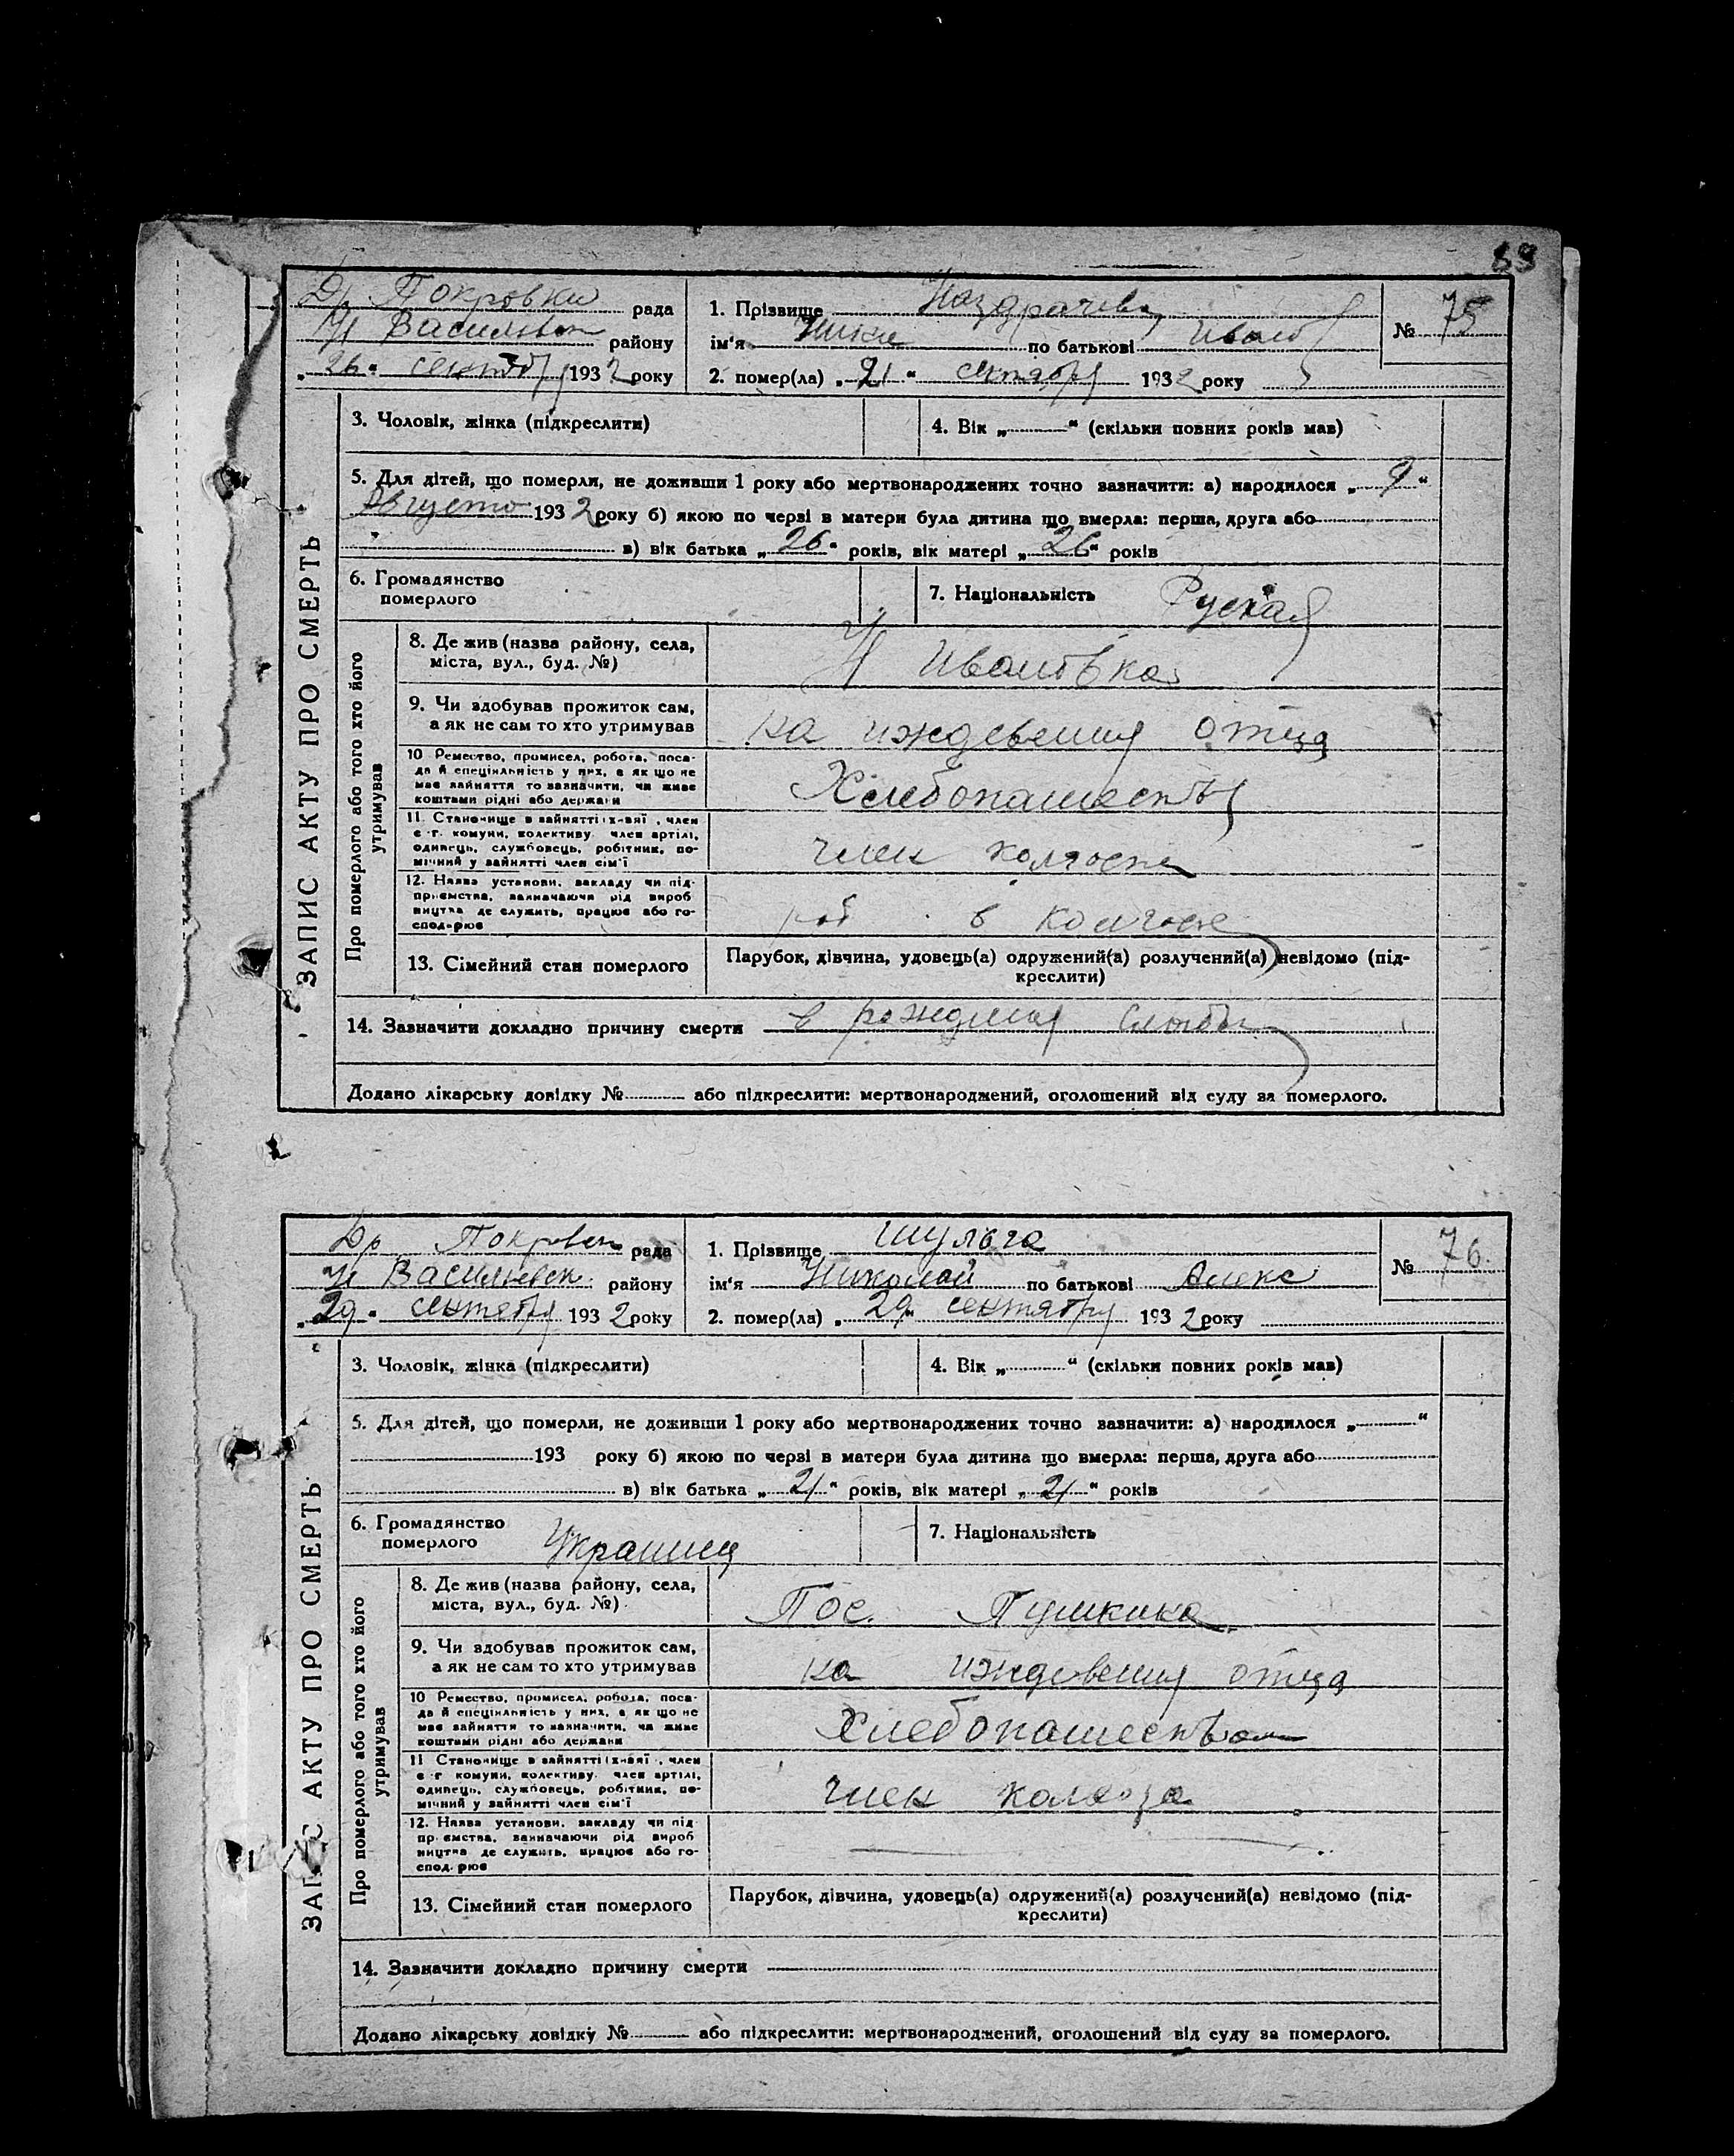 83
Др Покровки рада
Н Васильевск району
„26“ сентябр 1932 року
1. Прізвище Ноздрачева
ім'я Нина по батькові Иван
2. помер(ла) „21“ сентября 1932 року
№ 75
ЗАПИС АКТУ ПРО СМЕРТЬ
3. Чоловік, жінка (підкреслити)
4. Вік „ “ (скільки повних років мав)
5. Для дітей, що померли, не доживши 1 року або мертвонароджених точно зазначити: а) народилося „9“
Августа 1932 року б) якою по черві в матери була дитина що вмерла: перша, друга або
в) вік батька „26“ років, вік матері „26“ років
6. Громадянство
померлого
7. Національність Руская
Про померлого або того хто його
утримував
8. Де жив (назва району, села,
міста, вул., буд. №)
Н Ивановка
9. Чи здобував прожиток сам,
а як не сам то хто утримував
на иждевения отца
10 Ремество, промисел, робота, поса-
да й спеціяльність у них, а як що не
має зайняття то зазначити, чи живе
коштами рідні або держави
11. Становище в зайнятті , член
с.-г. комуни, колективу член артілі,
одинець, службовець, робітник, по-
мічний у зайнятті член сім'ї
член
12. Назва установи, закладу чи під-
приємства, зазначаючи рід вироб
ництва де служить, працює або го-
спод-рює
в
13. Сімейний стан померлого
Парубок, дівчина, удовець(а) одружений(а) розлучений(а) невідомо (під-
креслити)
14. Зазначити докладно причину смерти в
Додано лікарську довідку № або підкреслити: мертвонароджений, оголошений від суду за померлого.
Др Покровск рада
Н Васильевск району
„29“ сентября 1932 року
1. Прізвище Шульга
ім'я Николай по батькові Алекс
2. помер(ла) „29“ сентября 1932 року
№ 76.
ЗАПИС АКТУ ПРО СМЕРТЬ
3. Чоловік, жінка (підкреслити)
4. Вік „ “ (скільки повних років мав)
5. Для дітей, що померли, не доживши 1 року або мертвонароджених точно зазначити: а) народилося „ “
193 року б) якою по черві в матери була дитина що вмерла: перша, друга або
в) вік батька „21“ років, вік матері „21“ років
6. Громадянство
померлого
Украинец
7. Національність
Про померлого або того хто його
утримував
8. Де жив (назва району, села,
міста, вул., буд. №)
Пос. Пушкина
9. Чи здобував прожиток сам,
а як не сам то хто утримував
на иждевения отца
10 Ремество, промисел, робота, поса-
да й спеціяльність у них, а як що не
має зайняття то зазначити, чи живе
коштами рідні або держави
11 Становище в зайнятті , член
с.-г комуни, колективу член артілі,
одинець, службовець, робітник, по-
мічний у зайнятті член сім'ї
член
12. Назва установи, закладу чи під-
приємства, зазначаючи рід вироб
ництва де служить, працює або го-
спод-рює
13. Сімейний стан померлого
Парубок, дівчина, удовець(а) одружений(а) розлучений(а) невідомо (під-
креслити)
14. Зазначити докладно причину смерти
Додано лікарську довідку № або підкреслити: мертвонароджений, оголошений від суду за померлого.